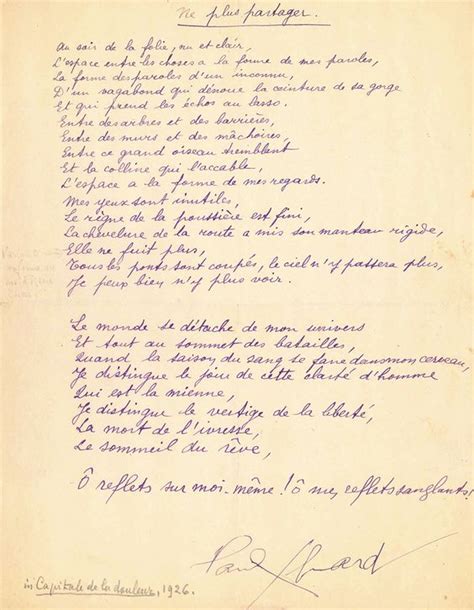 Ne plus partager.
Au soir de la folie, nu et clair,
L'espace entre les choses a la forme de mes paroles,
La forme des paroles d'un inconnu,
D'un vagabond qui dénoue la ceinture de sa gorge
Et qui prend les échos au lasso.
Entre des arbres et des barrières,
Entre des murs et des mâchoires,
Entre ce grand oiseau tremblant
Et la colline qui l'accable,
L'espace a la forme de mes regards.
Mes yeux sont inutiles,
Le règne de la poussière est fini,
La chevelure de la route a mis son manteau rigide,
Elle ne fuit plus,
Tous les ponts sont coupés, le ciel n'y passera plus,
Je peux bien n'y plus voir.
Le monde se détache de mon univers
Et tout au sommet des batailles,
Quand la saison du sang se fane dans mon cerveau,
Je distingue le jour de cette clarté d'homme
Qui est la mienne,
Je distingue le vertige de la liberté,
La mort de l'ivresse,
Le sommeil du rêve,
Ô reflets sur moi-même ! ô mes reflets sanglants !
Paul Eluard
in Capitale de la douleur, 1926.